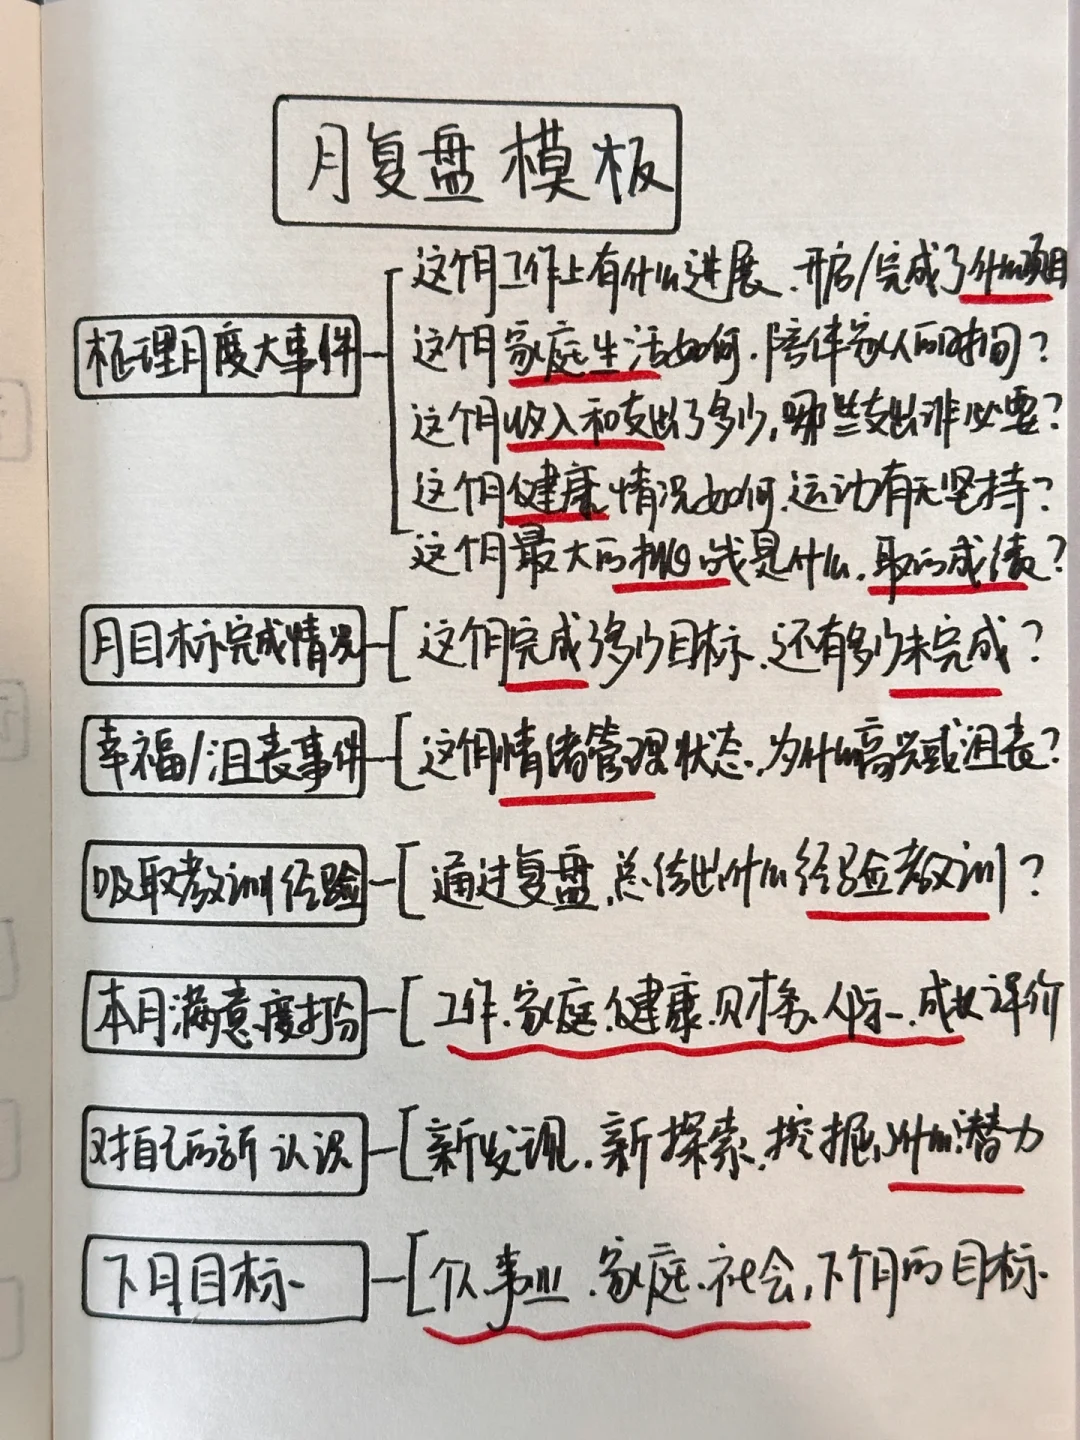 月复盘模板
这个月工作上有什么进展、开启/完成了什么项目
梳理月度大事件
这个月家庭生活如何、陪伴家人的时间?
这个月收入和支出了多少,哪些支出非必要?
这个月健康情况如何、运动有无坚持?
这个月最大的挑战是什么、取的成绩?
月目标完成情况
这个月完成了多少目标、还有多少未完成?
幸福/沮丧事件
这个月情绪管理状态、为什么高兴或沮丧?
吸取教训经验
通过复盘、总结出什么经验教训?
本月满意度打分
工作、家庭、健康、财务、人际、成长评价
对自己的新认识
新发现、新探索、挖掘出什么潜力
下月目标
个人、事业、家庭、社会,下个月的目标